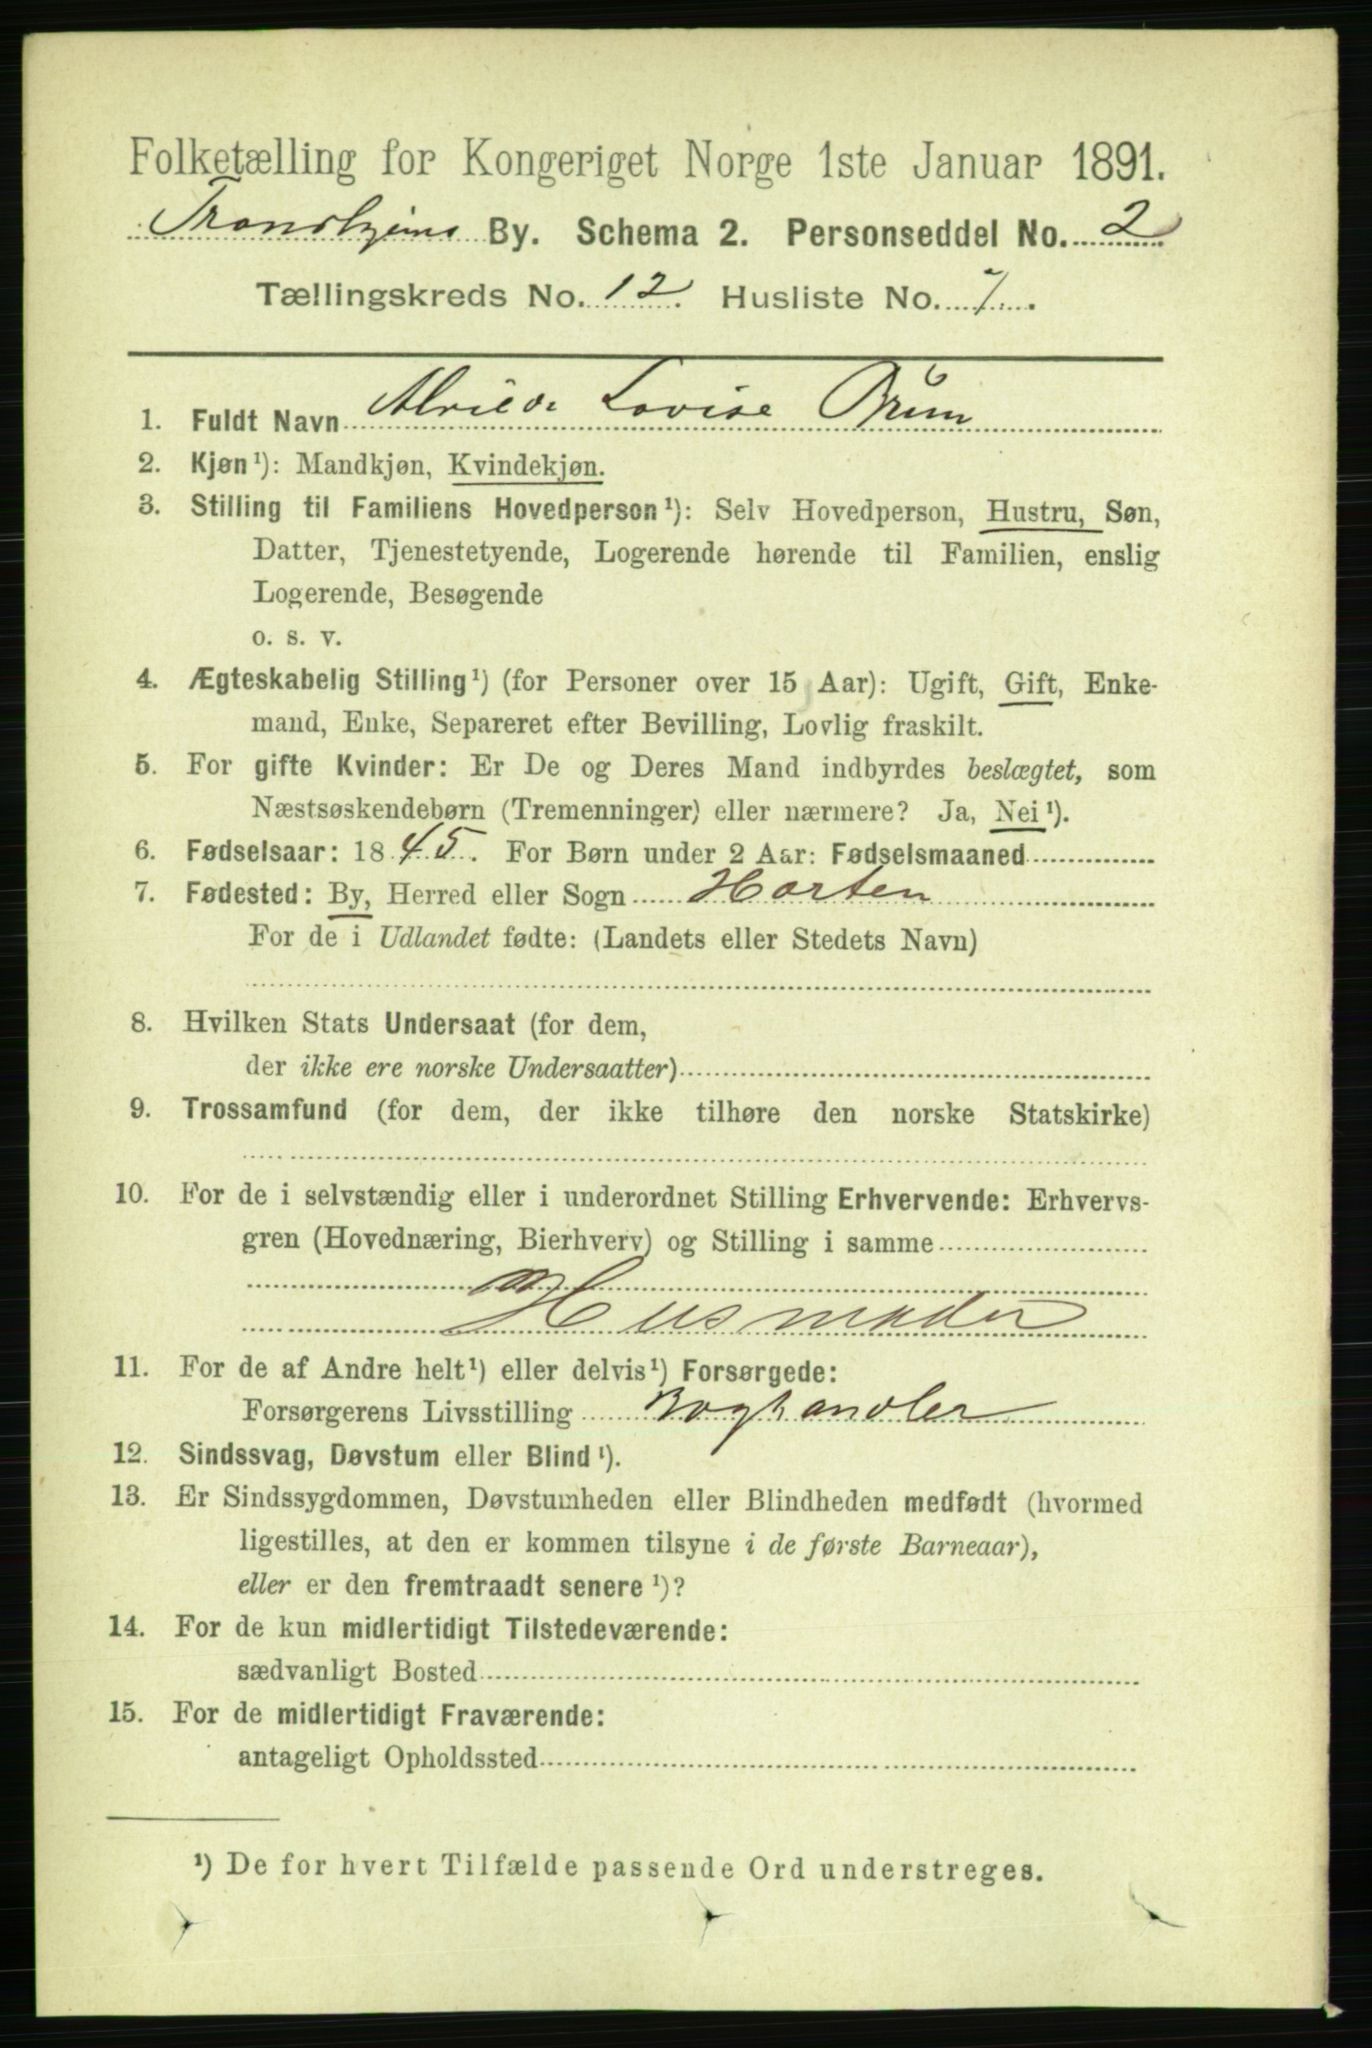 Folketælling for Kongeriget Norge 1ste Januar 1891.
Trondhjems By. Schema 2. Personseddel No. 2
Tællingskreds No. 12. Husliste No. 7.
1. Fuldt Navn Alvilde Lovise Brun
2. Kjøn¹): Mandkjøn, Kvindekjøn.
3. Stilling til Familiens Hovedperson¹): Selv Hovedperson, Hustru, Søn,
Datter, Tjenestetyende, Logerende hørende til Familien, enslig
Logerende, Besøgende
o. s. v.
4. Ægteskabelig Stilling¹) (for Personer over 15 Aar): Ugift, Gift, Enke-
mand, Enke, Separeret efter Bevilling, Lovlig fraskilt.
5. For gifte Kvinder: Er De og Deres Mand indbyrdes beslægtet, som
Næstsøskendebørn (Tremenninger) eller nærmere? Ja, Nei¹).
6. Fødselsaar: 1845. For Børn under 2 Aar: Fødselsmaaned
7. Fødested: By, Herred eller Sogn Horten
For de i Udlandet fødte: (Landets eller Stedets Navn)
8. Hvilken Stats Undersaat (for dem,
der ikke ere norske Undersaatter)
9. Trossamfund (for dem, der ikke tilhøre den norske Statskirke)
10. For de i selvstændig eller i underordnet Stilling Erhvervende: Erhvervs-
gren (Hovednæring, Bierhverv) og Stilling i samme
Husmoder
11. For de af Andre helt¹) eller delvis¹) Forsørgede:
Forsørgerens Livsstilling Boghandler
12. Sindssvag, Døvstum eller Blind¹).
13. Er Sindssygdommen, Døvstumheden eller Blindheden medfødt (hvormed
ligestilles, at den er kommen tilsyne i de første Barneaar),
eller er den fremtraadt senere¹)?
14. For de kun midlertidigt Tilstedeværende:
sædvanligt Bosted
15. For de midlertidigt Fraværende:
antageligt Opholdssted
¹) De for hvert Tilfælde passende Ord understreges.